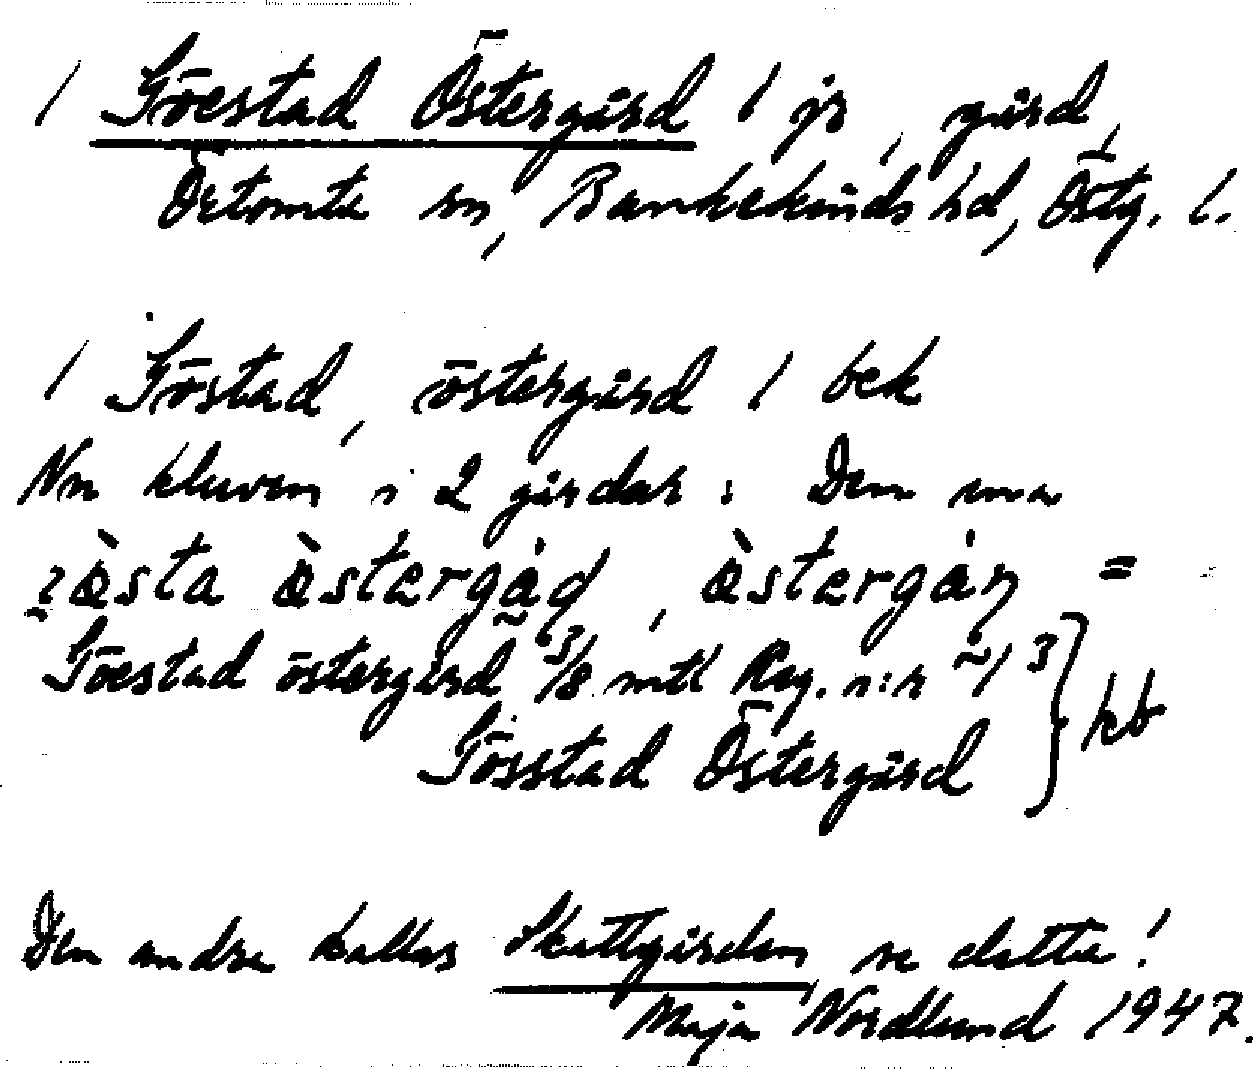 / Göestad Östergård / jr, gård,
Örtomta sn, Bankekinds hd, Östg. l.
/ Göstad, östergård / bek
Nu kluven i 2 gårdar: Den ena
östergård =
Göestad östergård 3/8 mtl Reg. n:r 2/3
Gösstad Östergård } kb
Den andra kallas Skattgården, se detta!
Maja Nordlund 1947.